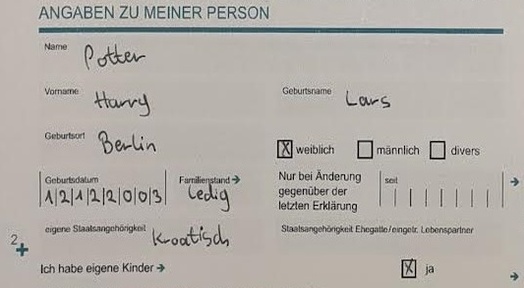 ANGABEN ZU MEINER PERSON
Name Potter
Vorname Harry Geburtsname Lars
Geburtsort Berlin weiblich männlich divers
Geburtsdatum Familienstand → Nur bei Änderung seit
gegenüber der
12122003 ledig letzten Erklärung
eigene Staatsangehörigkeit Kroatisch Staatsangehörigkeit Ehegatte/eingetr. Lebenspartner
2
Ich habe eigene Kinder → ja